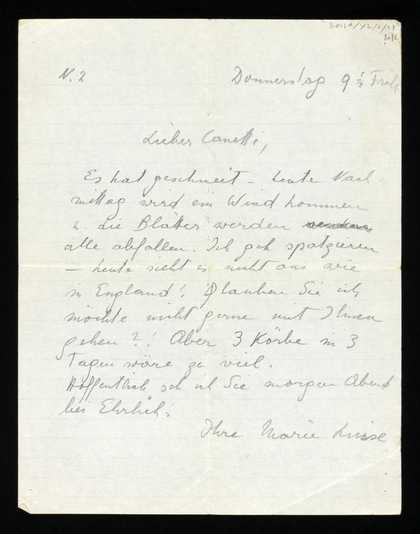 N. 2
Donnerstag 9 ½ Früh
Lieber Canetti,
Es hat geschneit – heute Nach-
mittag wird ein Wind kommen
u. die Blätter werden
alle abfallen. Ich geh spatzieren
– heute sieht es nicht aus wie
in England! Glauben Sie ich
möchte nicht gerne mit Ihnen
gehen?! Aber 3 Körbe in 3
Tagen wäre zu viel.
Hoffentlich seh ich Sie morgen Abend
bei Ehrlich.
Ihre Marie Luise